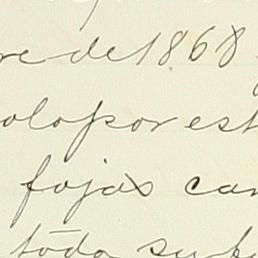 re de 1868
olo por est
fojas can
todo su